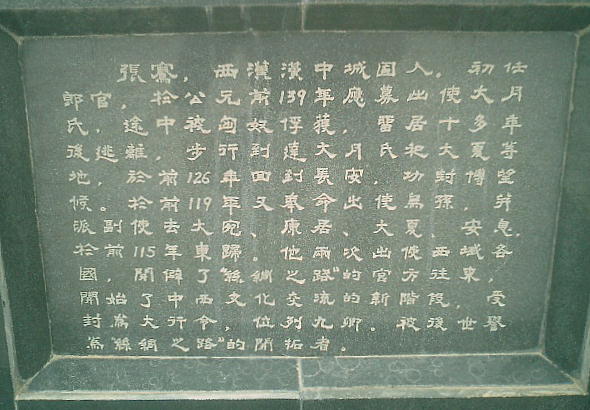 張騫，西漢漢中城固人。初任
郎官，於公元前139年應募出使大月
氏，途中被匈奴俘獲，留居十多年
後逃離，步行到達大月氏和大夏等
地，於前126年回到長安，功封博望
候。於前119年又奉命出使烏孫，并
派副使去大宛、康居、大夏、安息各
國，於前115年東歸。他兩次出使西域，
開僻了“絲綢之路”的官方往來，
開始了中西文化交流的新階段，受
封為大行令，位列九卿。被後世譽
為“絲綢之路”的開拓者。